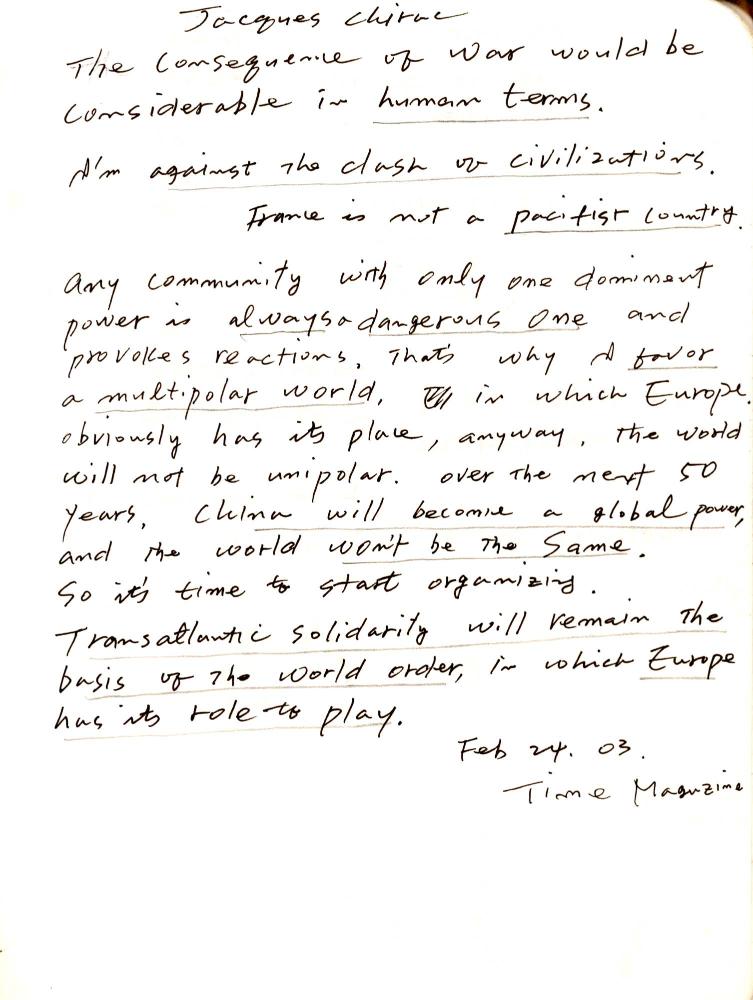 Jacques Chirac
The Consequence of War would be
Considerable in human terms.
I'm against the clash of civilizations.
France is not a pacifist Country.
any community with only one dominent
power is always a dangerous one and
provokes reactions. That's why I favor
a multipolar world, in which Europe
obviously has its place, anyway, the world
will not be unipolar. over the next 50
years, China will become a global power,
and the world won't be the Same.
So it's time to start organizing.
Transatlantic solidarity will remain the
basis of the world order, in which Europe
has its role to play.
Feb 24. 03.
Time Magazine